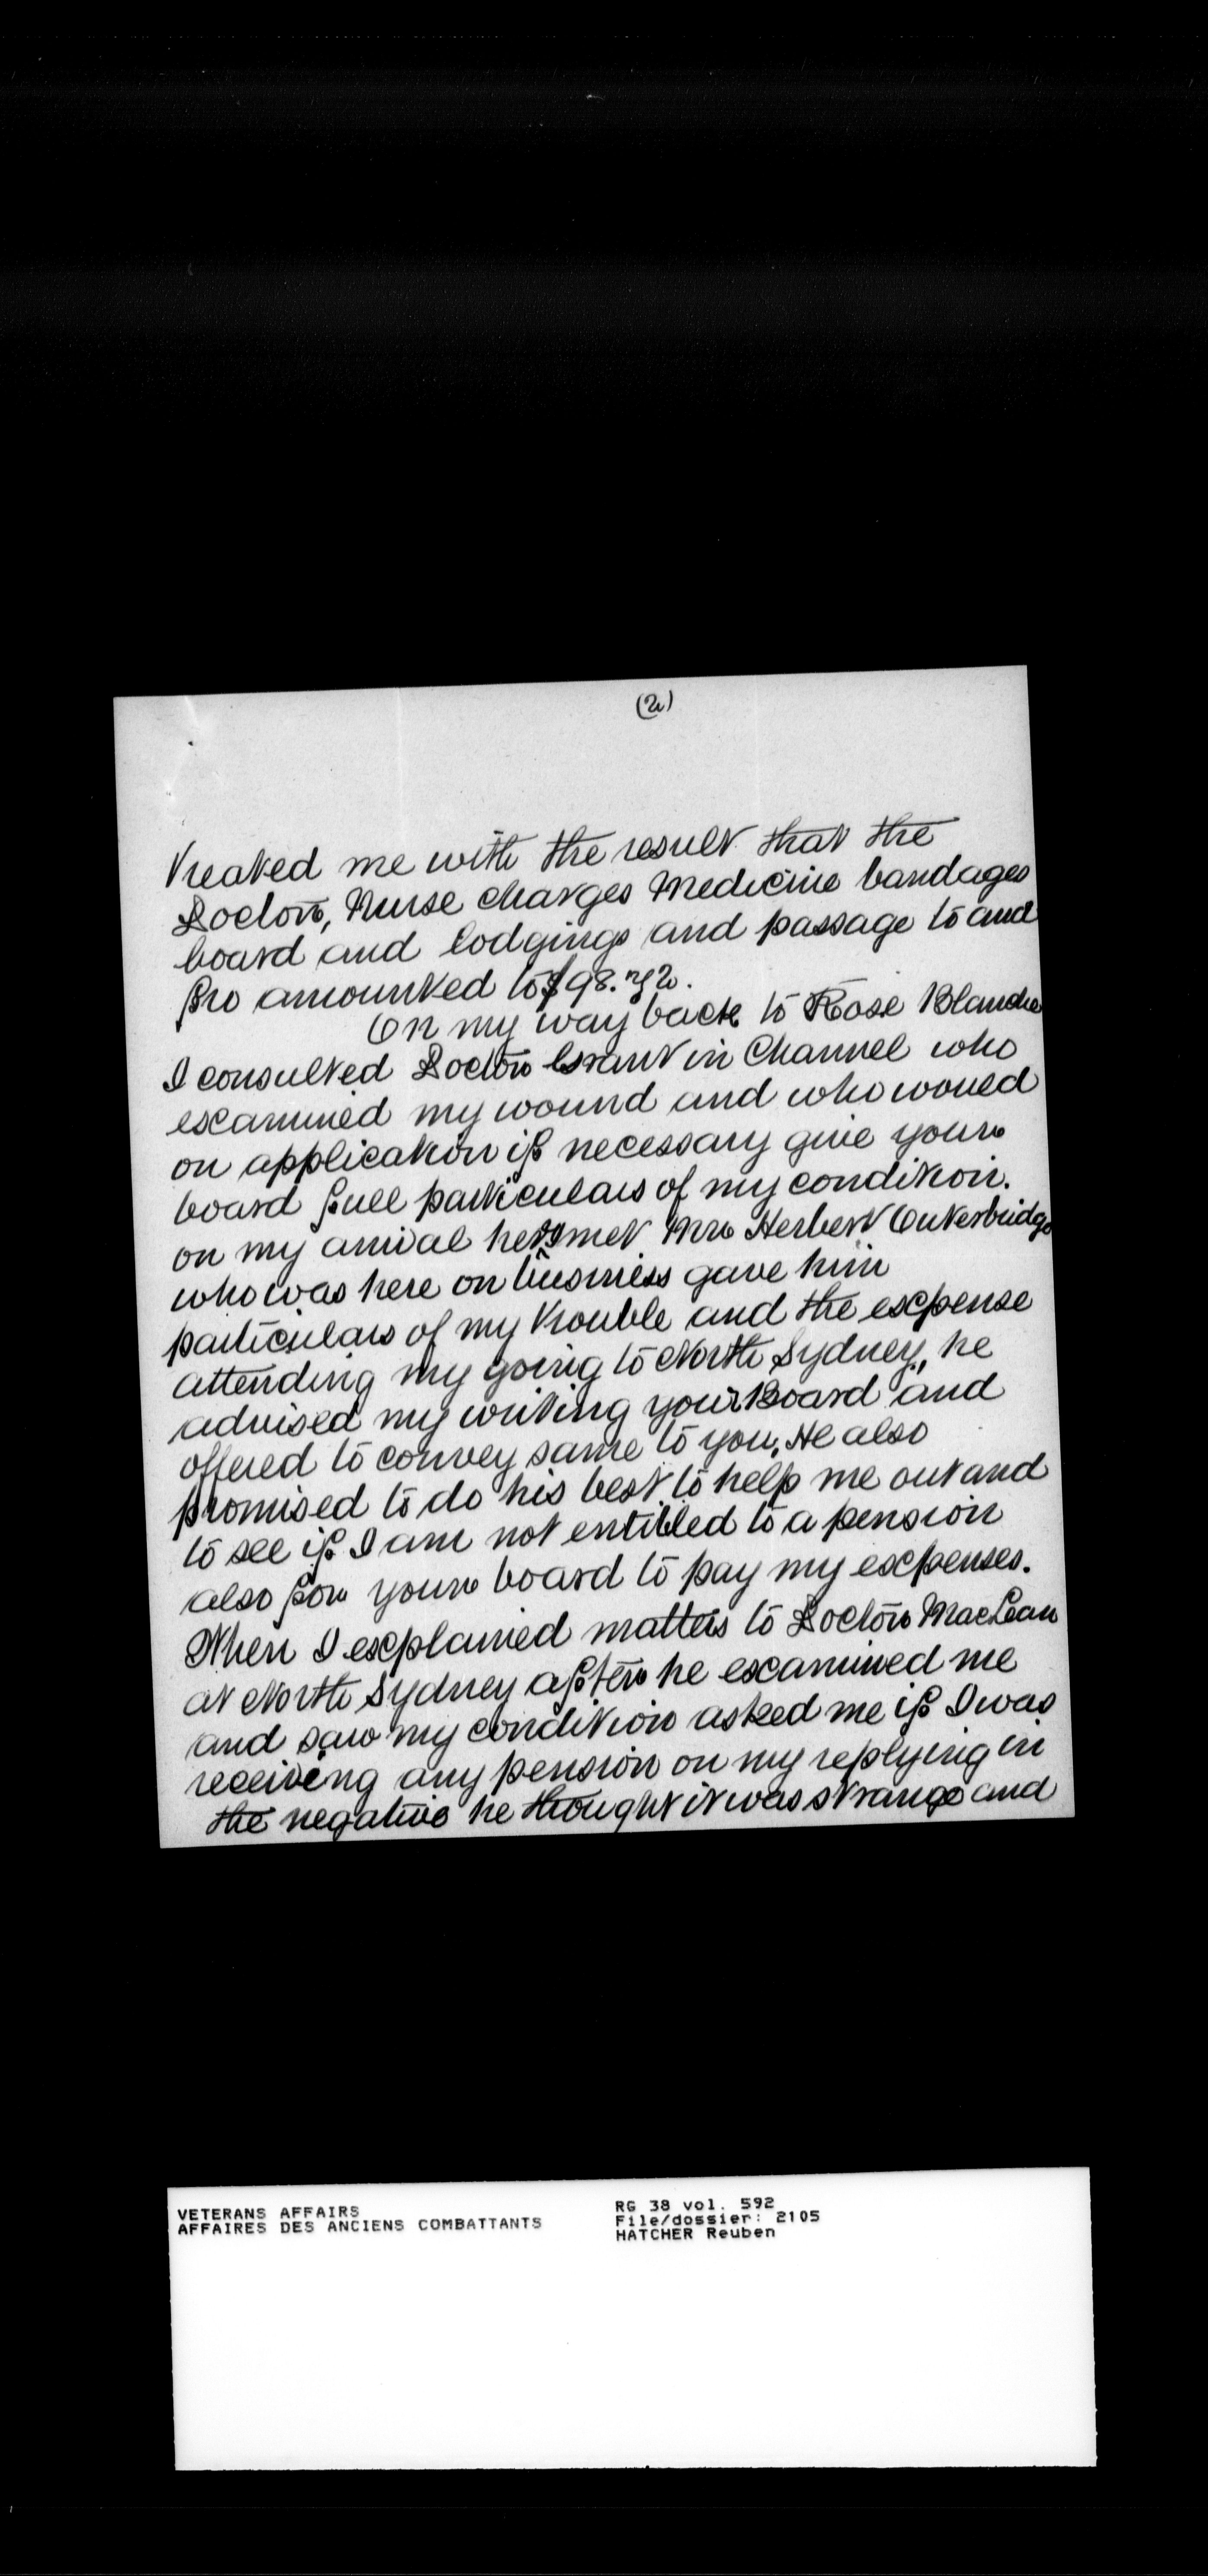 (2)
treated me with the result that the
Doctor, Nurse charges Medicine bandages
board and lodgings and passage to and
fro amounted to $98.72.
On my way back to Rose Blanche
I consulted Doctor Grant in Channel who
examined my wound and who would
on application if necessary give your
board full particulars of my condition.
on my arrival here met Mr Herbert Outerbridge
who was here on business gave him
particulars of my trouble and the expense
attending my going to North Sydney, he
advised my writing your Board and
offered to convey same to you. He also
promised to do his best to help me out and
to see if I am not entitled to a pension
also for your board to pay my expenses.
When I explained matters to Doctor MacLean
at North Sydney after he examined me
and saw my condition asked me if I was
receiving any pension on my replying in
the negative he thought it was strange and
VETERANS AFFAIRS
AFFAIRES DES ANCIENS COMBATTANTS
RG 38 vol. 592
File/dossier: 2105
HATCHER Reuben